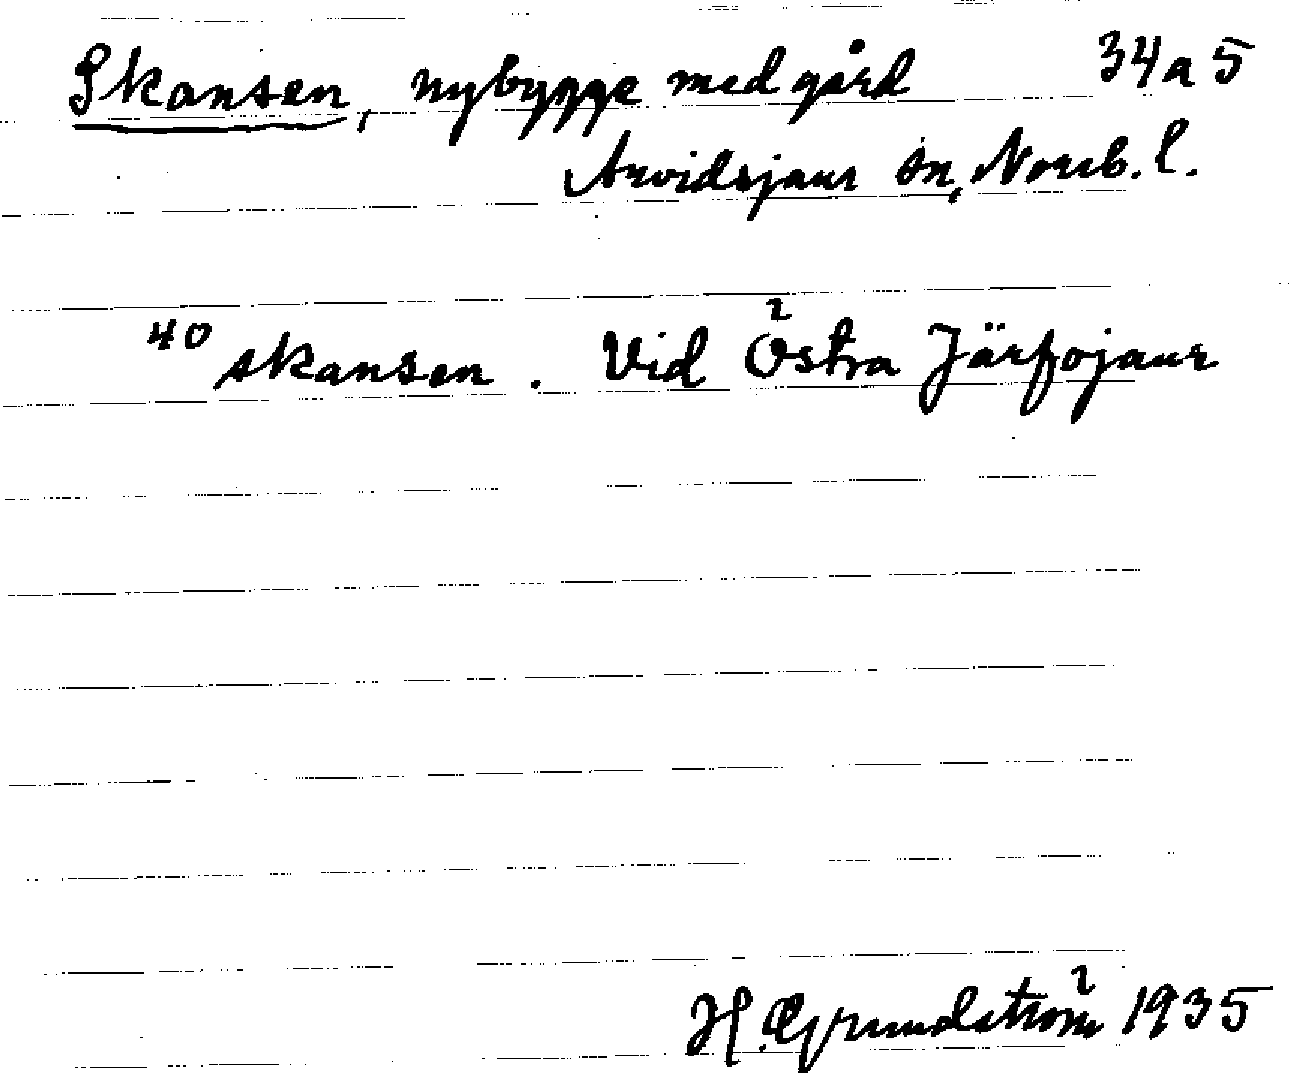 Skansen, nybygge med gård 34a5
Arvidsjaur sn, Norrb. l.
40 skansen. Vid Östra Järfojaur
H. Grundström 1935